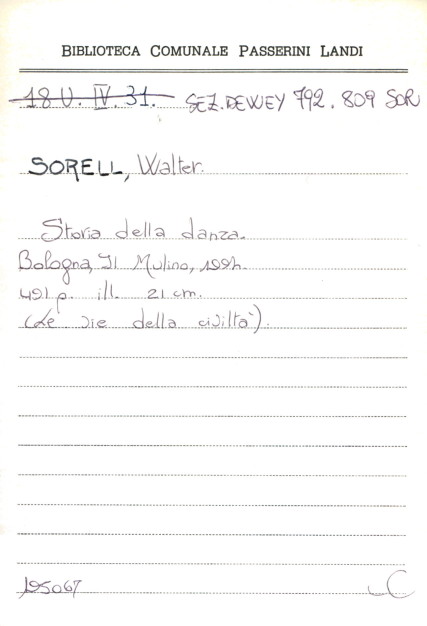 BIBLIOTECA COMUNALE PASSERINI LANDI
18 U. IV. 31. SEZ. DEWEY 792.809 SOR
SORELL, Walter.
Storia della danza.
Bologna, Il Mulino, 1994.
491 p. ill. 21 cm.
(Le vie della civiltà).
195067